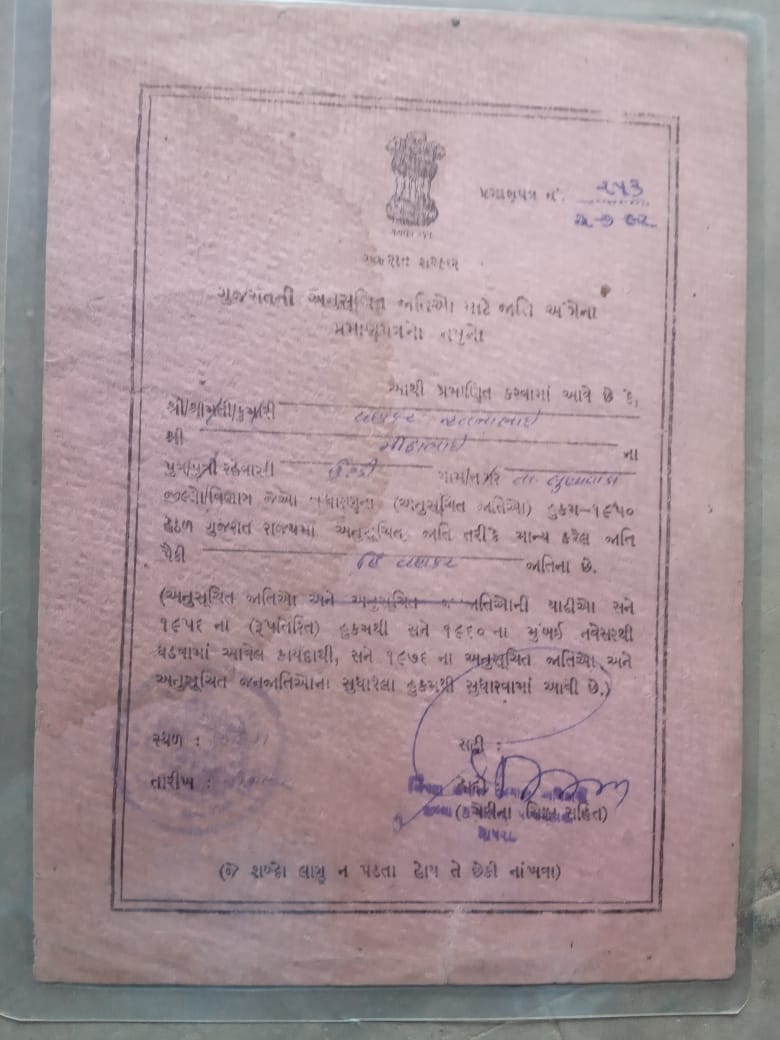 પ્રમાણપત્ર નં. ૨૫૩
ગુજરાત સરકાર
ગુજરાતની અનુસૂચિત જાતિઓ માટે જાતિ અંગેના
પ્રમાણપત્રનો નમૂનો
આથી પ્રમાણિત કરવામાં આવે છે કે,
શ્રી/શ્રીમતી/કુમારી વણકર
શ્રી મીઠાભાઈ ના
પુત્ર/પુત્રી રહેવાસી ગામ/નગર તા. લુણાવાડા
જીલ્લો/વિભાગ જેઓ બંધારણના (અનુસૂચિત જાતિઓ) હુકમ-૧૯૫૦
હેઠળ ગુજરાત રાજ્યમાં અનુસૂચિત જાતિ તરીકે માન્ય કરેલ જાતિ
પૈકી હિં વણકર જાતિના છે.
(અનુસૂચિત જાતિઓ અને અનુસૂચિત જનજાતિઓની યાદીઓ સને
૧૯૫૬ ના (રૂપાંતરિત) હુકમથી સને ૧૯૬૦ ના મુંબઈ નવેસરથી
ઘડવામાં આવેલ કાયદાથી, સને ૧૯૭૬ ના અનુસૂચિત જાતિઓ અને
અનુસૂચિત જનજાતિઓના સુધારેલા હુકમથી સુધારવામાં આવી છે.)
સ્થળ :
સહી :
તારીખ :
(કચેરીના સિક્કા સહિત)
(જે શબ્દો લાગુ ન પડતા હોય તે છેકી નાંખવા)